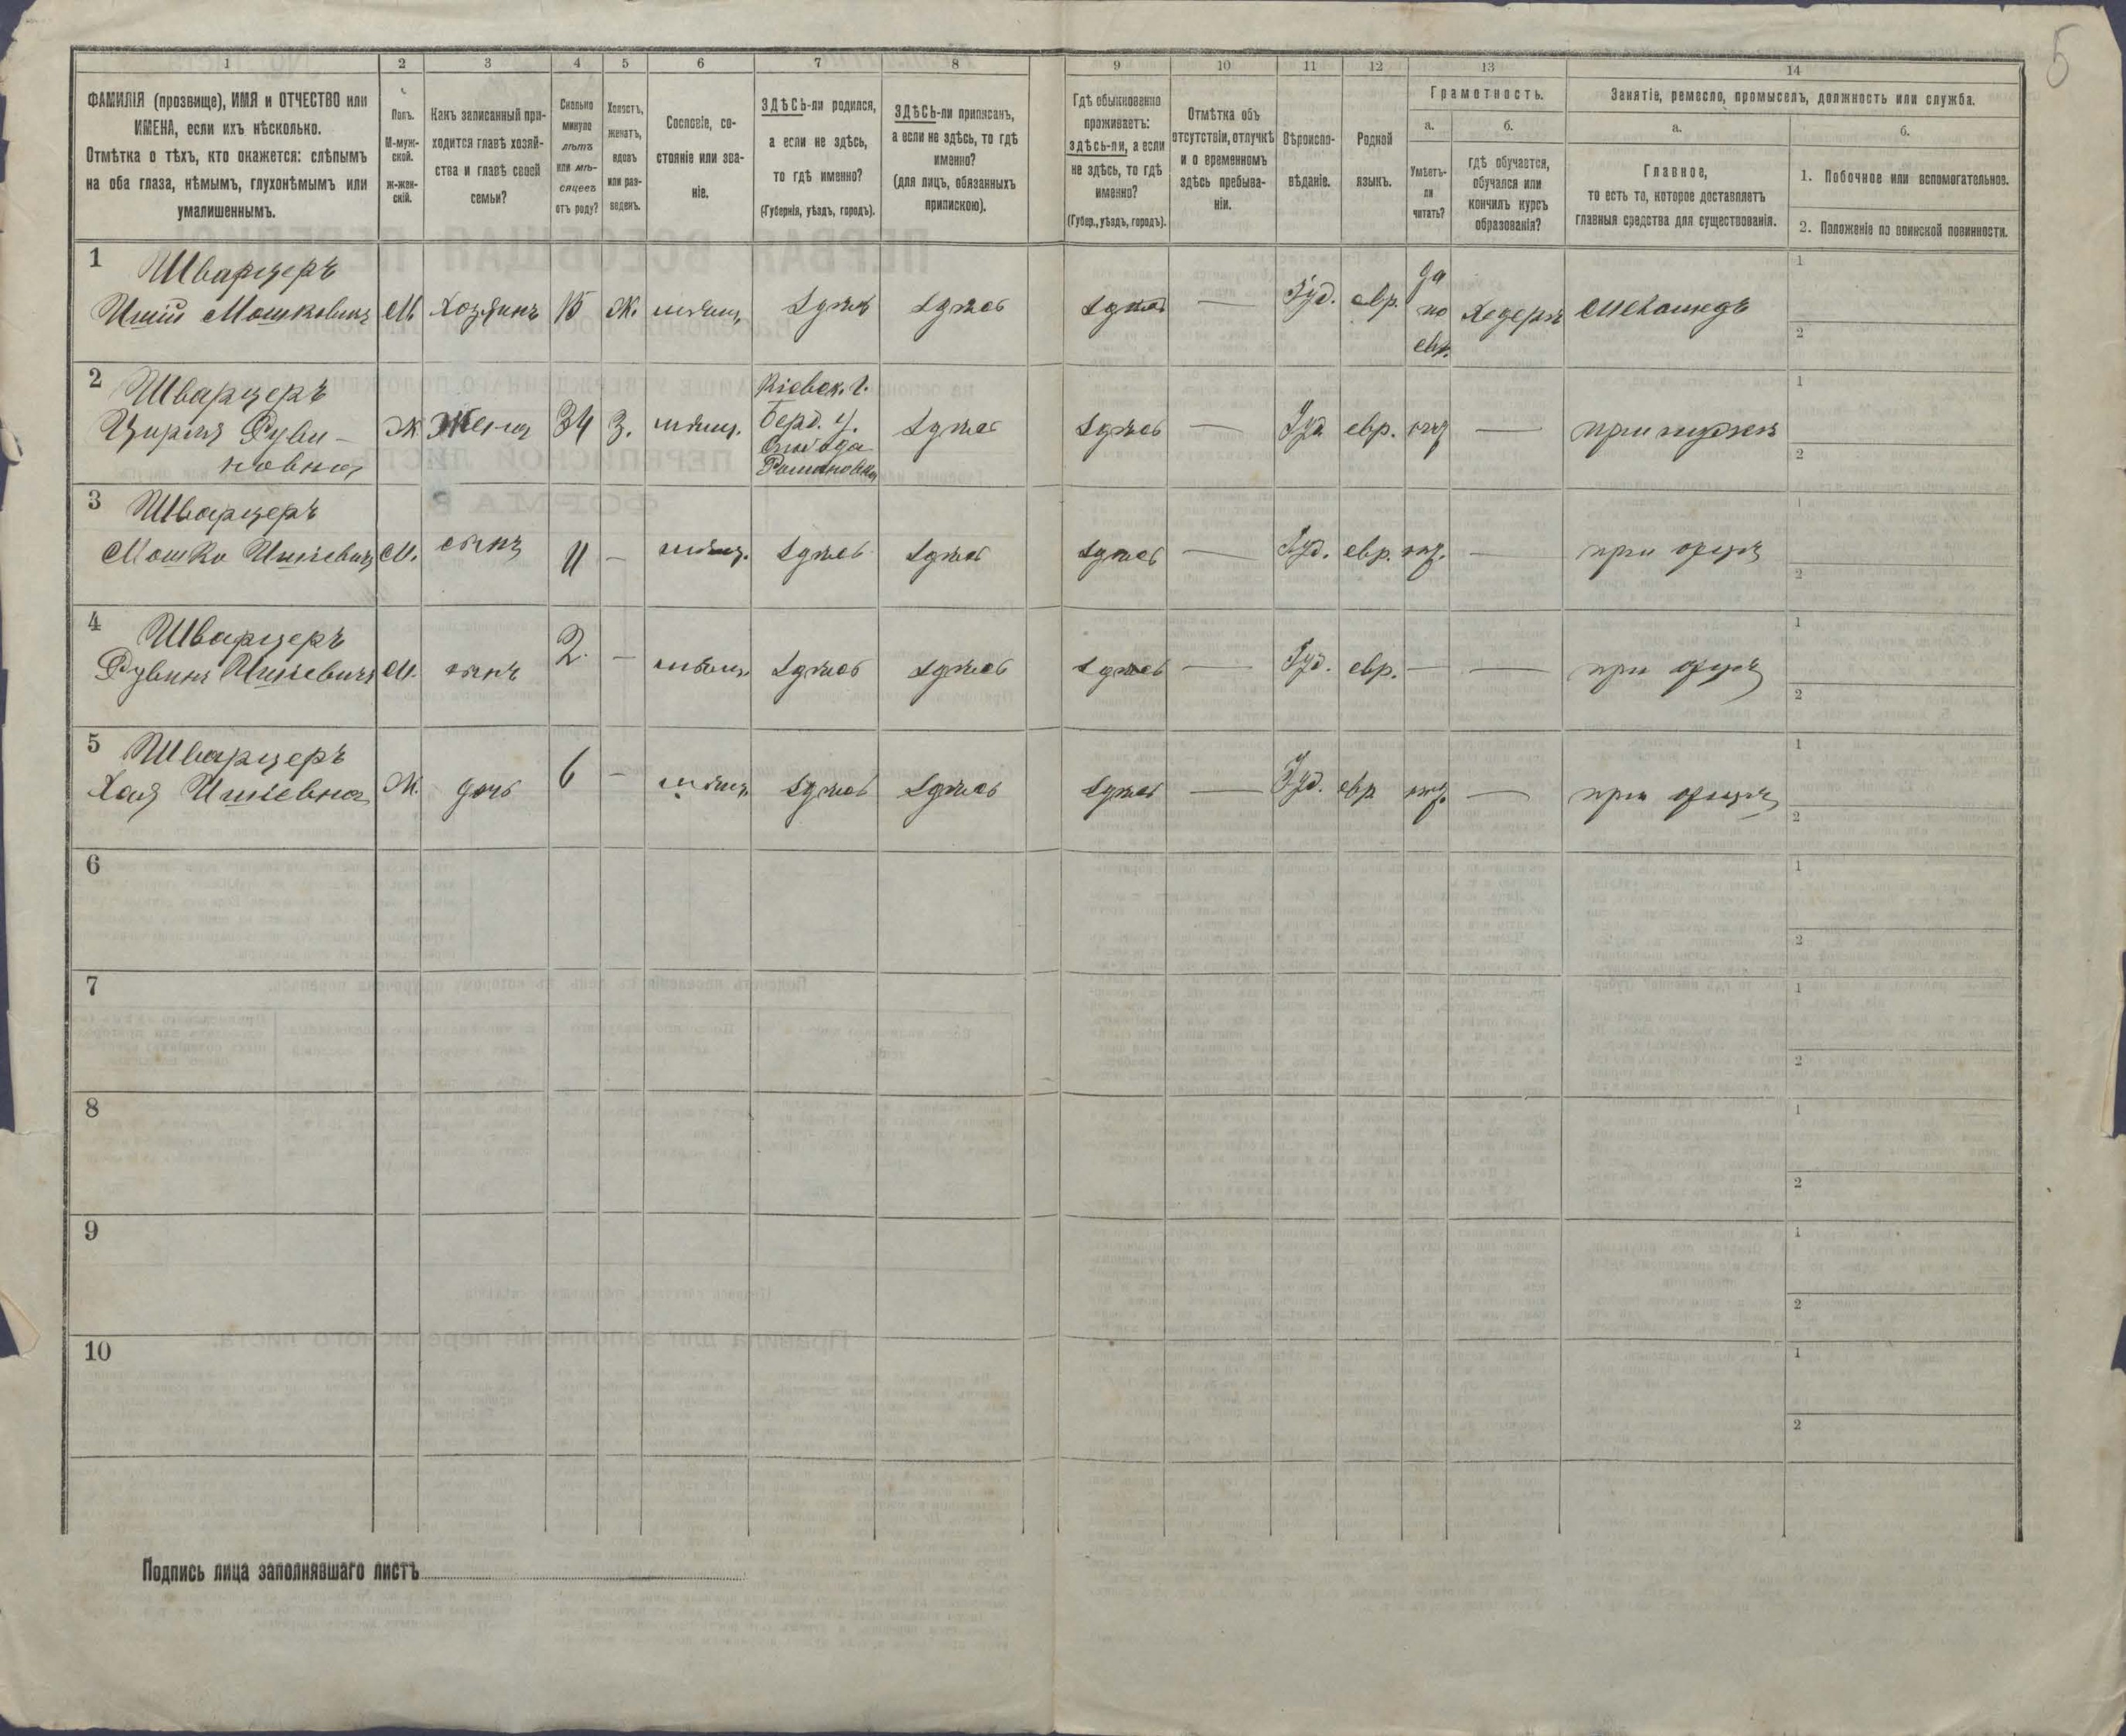 5
1 2 3 4 5 6 7 8 9 10 11 12 13 14
ФАМИЛІЯ (прозвище), ИМЯ и ОТЧЕСТВО или
ИМЕНА, если ихъ нѣсколько.
Отмѣтка о тѣхъ, кто окажется: слѣпымъ
на оба глаза, нѣмымъ, глухонѣмымъ или
умалишеннымъ.
Полъ.
М-муж-
ской.
ж-жен-
скій.
Какъ записанный при-
ходится главѣ хозяй-
ства и главѣ своей
семьи?
Сколько
минуло
лѣтъ
или мѣ-
сяцевъ
отъ роду?
Холостъ,
женатъ,
вдовъ
или раз-
веденъ.
Сословіе, со-
стояніе или зва-
ніе.
ЗДѢСЬ-ли родился,
а если не здѣсь,
то гдѣ именно?
(Губернія, уѣздъ, городъ).
ЗДѢСЬ-ли приписанъ,
а если не здѣсь, то гдѣ
именно?
(для лицъ, обязанныхъ
припискою).
Гдѣ обыкновенно
проживаетъ:
здѣсь-ли, а если
не здѣсь, то гдѣ
именно?
(Губер., уѣздъ, городъ).
Отмѣтка объ
отсутствіи, отлучкѣ
и о временномъ
здѣсь пребыва-
ніи.
Вѣроиспо-
вѣданіе.
Родной
языкъ.
Грамотность.
а.
Умѣетъ-
ли
читать?
б.
гдѣ обучается,
обучался или
кончилъ курсъ
образованія?
Занятіе, ремесло, промыселъ, должность или служба.
а.
Главное,
то есть то, которое доставляетъ
главныя средства для существованія.
б.
1. Побочное или вспомогательное.
2. Положеніе по воинской повинности.
1 Шварцеръ
Иший Мошковичъ М. хозяинъ Ж. мѣщ. здѣсь здѣсь здѣсь — Іуд. евр. да по евр. хедеръ 1 2
2 Шварцеръ
Цирля Руви-
новна Ж. Жена 34 З. мѣщ. Кіевск. г.
Берд. у.
Слобода
Романовка здѣсь здѣсь — Іуд евр. нѣт — при мужѣ 1 2
3 Шварцеръ
Мошко Ишіевичъ М. сынъ 11 — мѣщ. здѣсь здѣсь здѣсь — Іуд. евр. нѣт. — при отцѣ 1 2
4 Шварцеръ
Рувинъ Ишіевичъ М. сынъ 2. — мѣщ. здѣсь здѣсь здѣсь — Іуд. евр. — — при отцѣ 1 2
5 Шварцеръ
Хая Ишіевна Ж. дочь 6 — мѣщ. здѣсь здѣсь здѣсь — Іуд. евр нѣт. — при отцѣ 1 2
6 1 2
7 1 2
8 1 2
9 1 2
10 1 2
Подпись лица заполнявшаго листъ